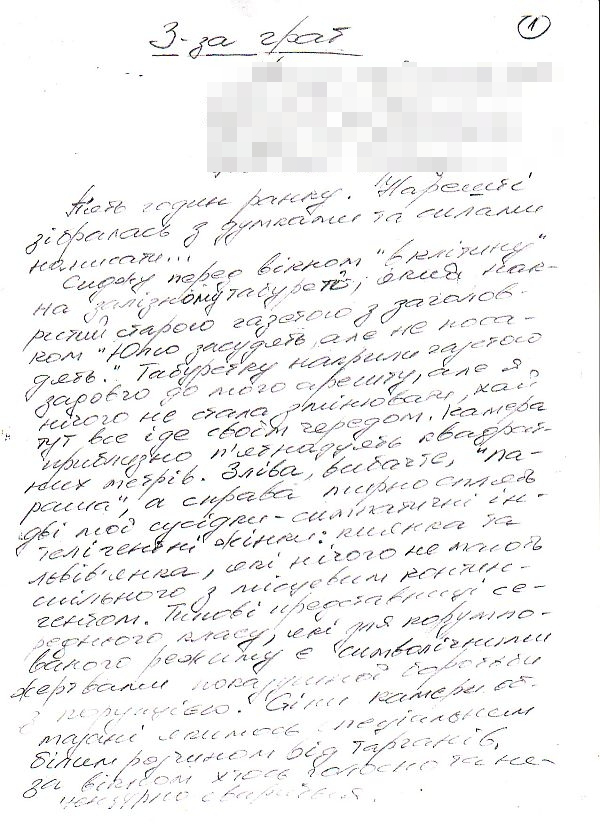 1
З-за грат
П'ять годин ранку. Нарешті
зібралась з думками та силами
написати...
Сиджу перед вікном "в клітину"
на залізному табуреті, який нак-
ритий старою газетою з заголов-
ком "Юлю засудять, але не поса-
дять." Табуретку накрили газетою
задовго до мого арешту, але я
нічого не стала змінювати, хай
тут все іде своїм чередом. Камера
приблизно п'ятнадцять квадрат-
них метрів. Зліва, вибачте, "па-
раша", а справа мирно сплять
дві мої сусідки - симпатичні ін-
телігентні жінки: киянка та
львів'янка, які нічого не мають
спільного з місцевим контин-
гентом. Типові представниці се-
реднього класу, які для корумпо-
ваного режиму є символічними
жертвами показушної боротьби
з корупцією. Стіни камери об-
мазані якимось подільним
білим розчином від тарганів,
за вікном хтось голосно та не-
цензурно свариться.